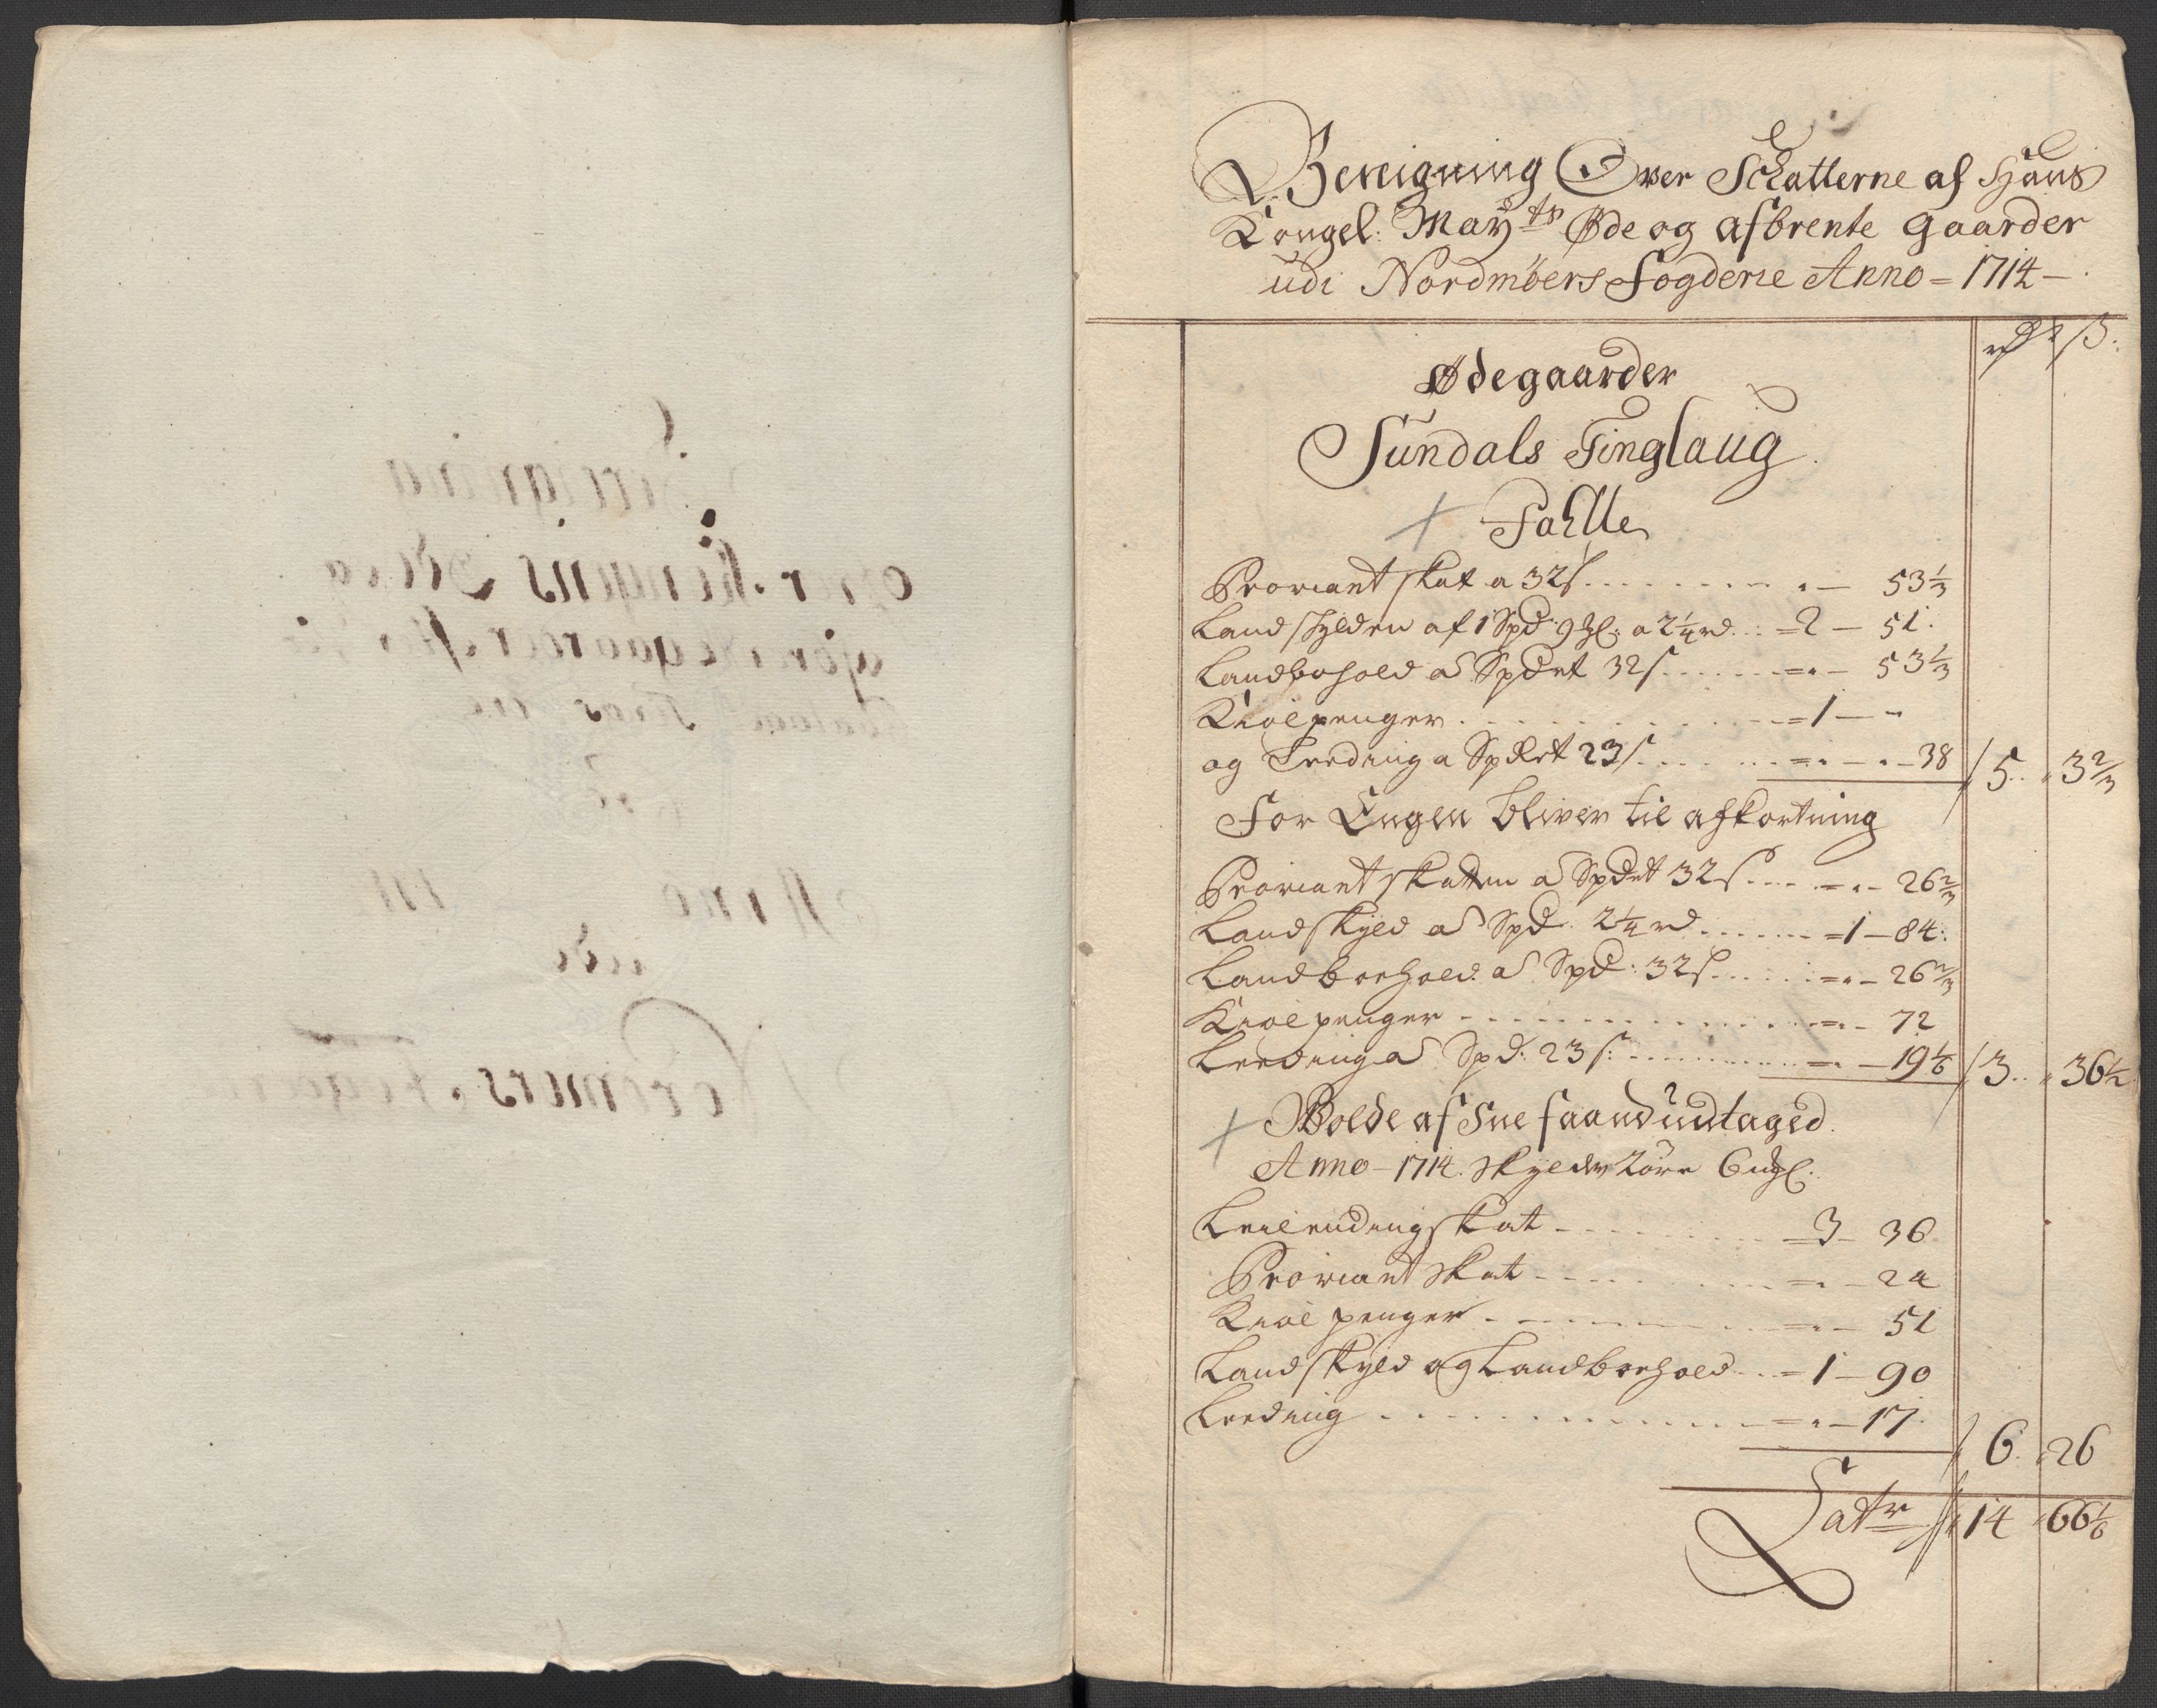 Bereigning Over Schatterne af Hans
Kongel: May:ts Øde og afbrente gaarder
udi Nordmøers Fogderie Anno = 1714 –
rdr ß:
Ødegaarder
Sundals Tinglaug
Fahlle
Proviant skat a 32ß - - - „ — 53⅓
Landskylden af 1 Spd 9 mkl: a 2¼ rd - - = 2 — 51
Landbohold a Spdet 32ß - - - = „ — 53⅓
Kiolpenger - - - = 1 — „
og Leeding a Spdet 23ß - - - = „ — „ 38 / 5 „ 3⅔
For Engen bliver til afkortning
Proviantskatten a Spdet 32ß - - - = „ — 26⅔
Landskyld a Spd 2¼ rd - - - = 1 — 84:
Landboehold a Spd: 32ß - - - = „ — 26⅔
Kiolpenger - - - = „ — 72
Leeding a Spd: 23ß: - - - = „ — 19⅙ / 3 „ 36½
Bolde af Snefaand udtaged
Anno – 1714. skylder 6 mkl:
Leilendingskat - - - = 3 — 36
Proviant skat - - - = „ — 24
Kiol penger - - - = „ — 51
Landskyld og Landboehold - - = 1 — 90
Leeding - - - = „ — 17 / 6 „ 26
Latr / 14 „ 66⅙